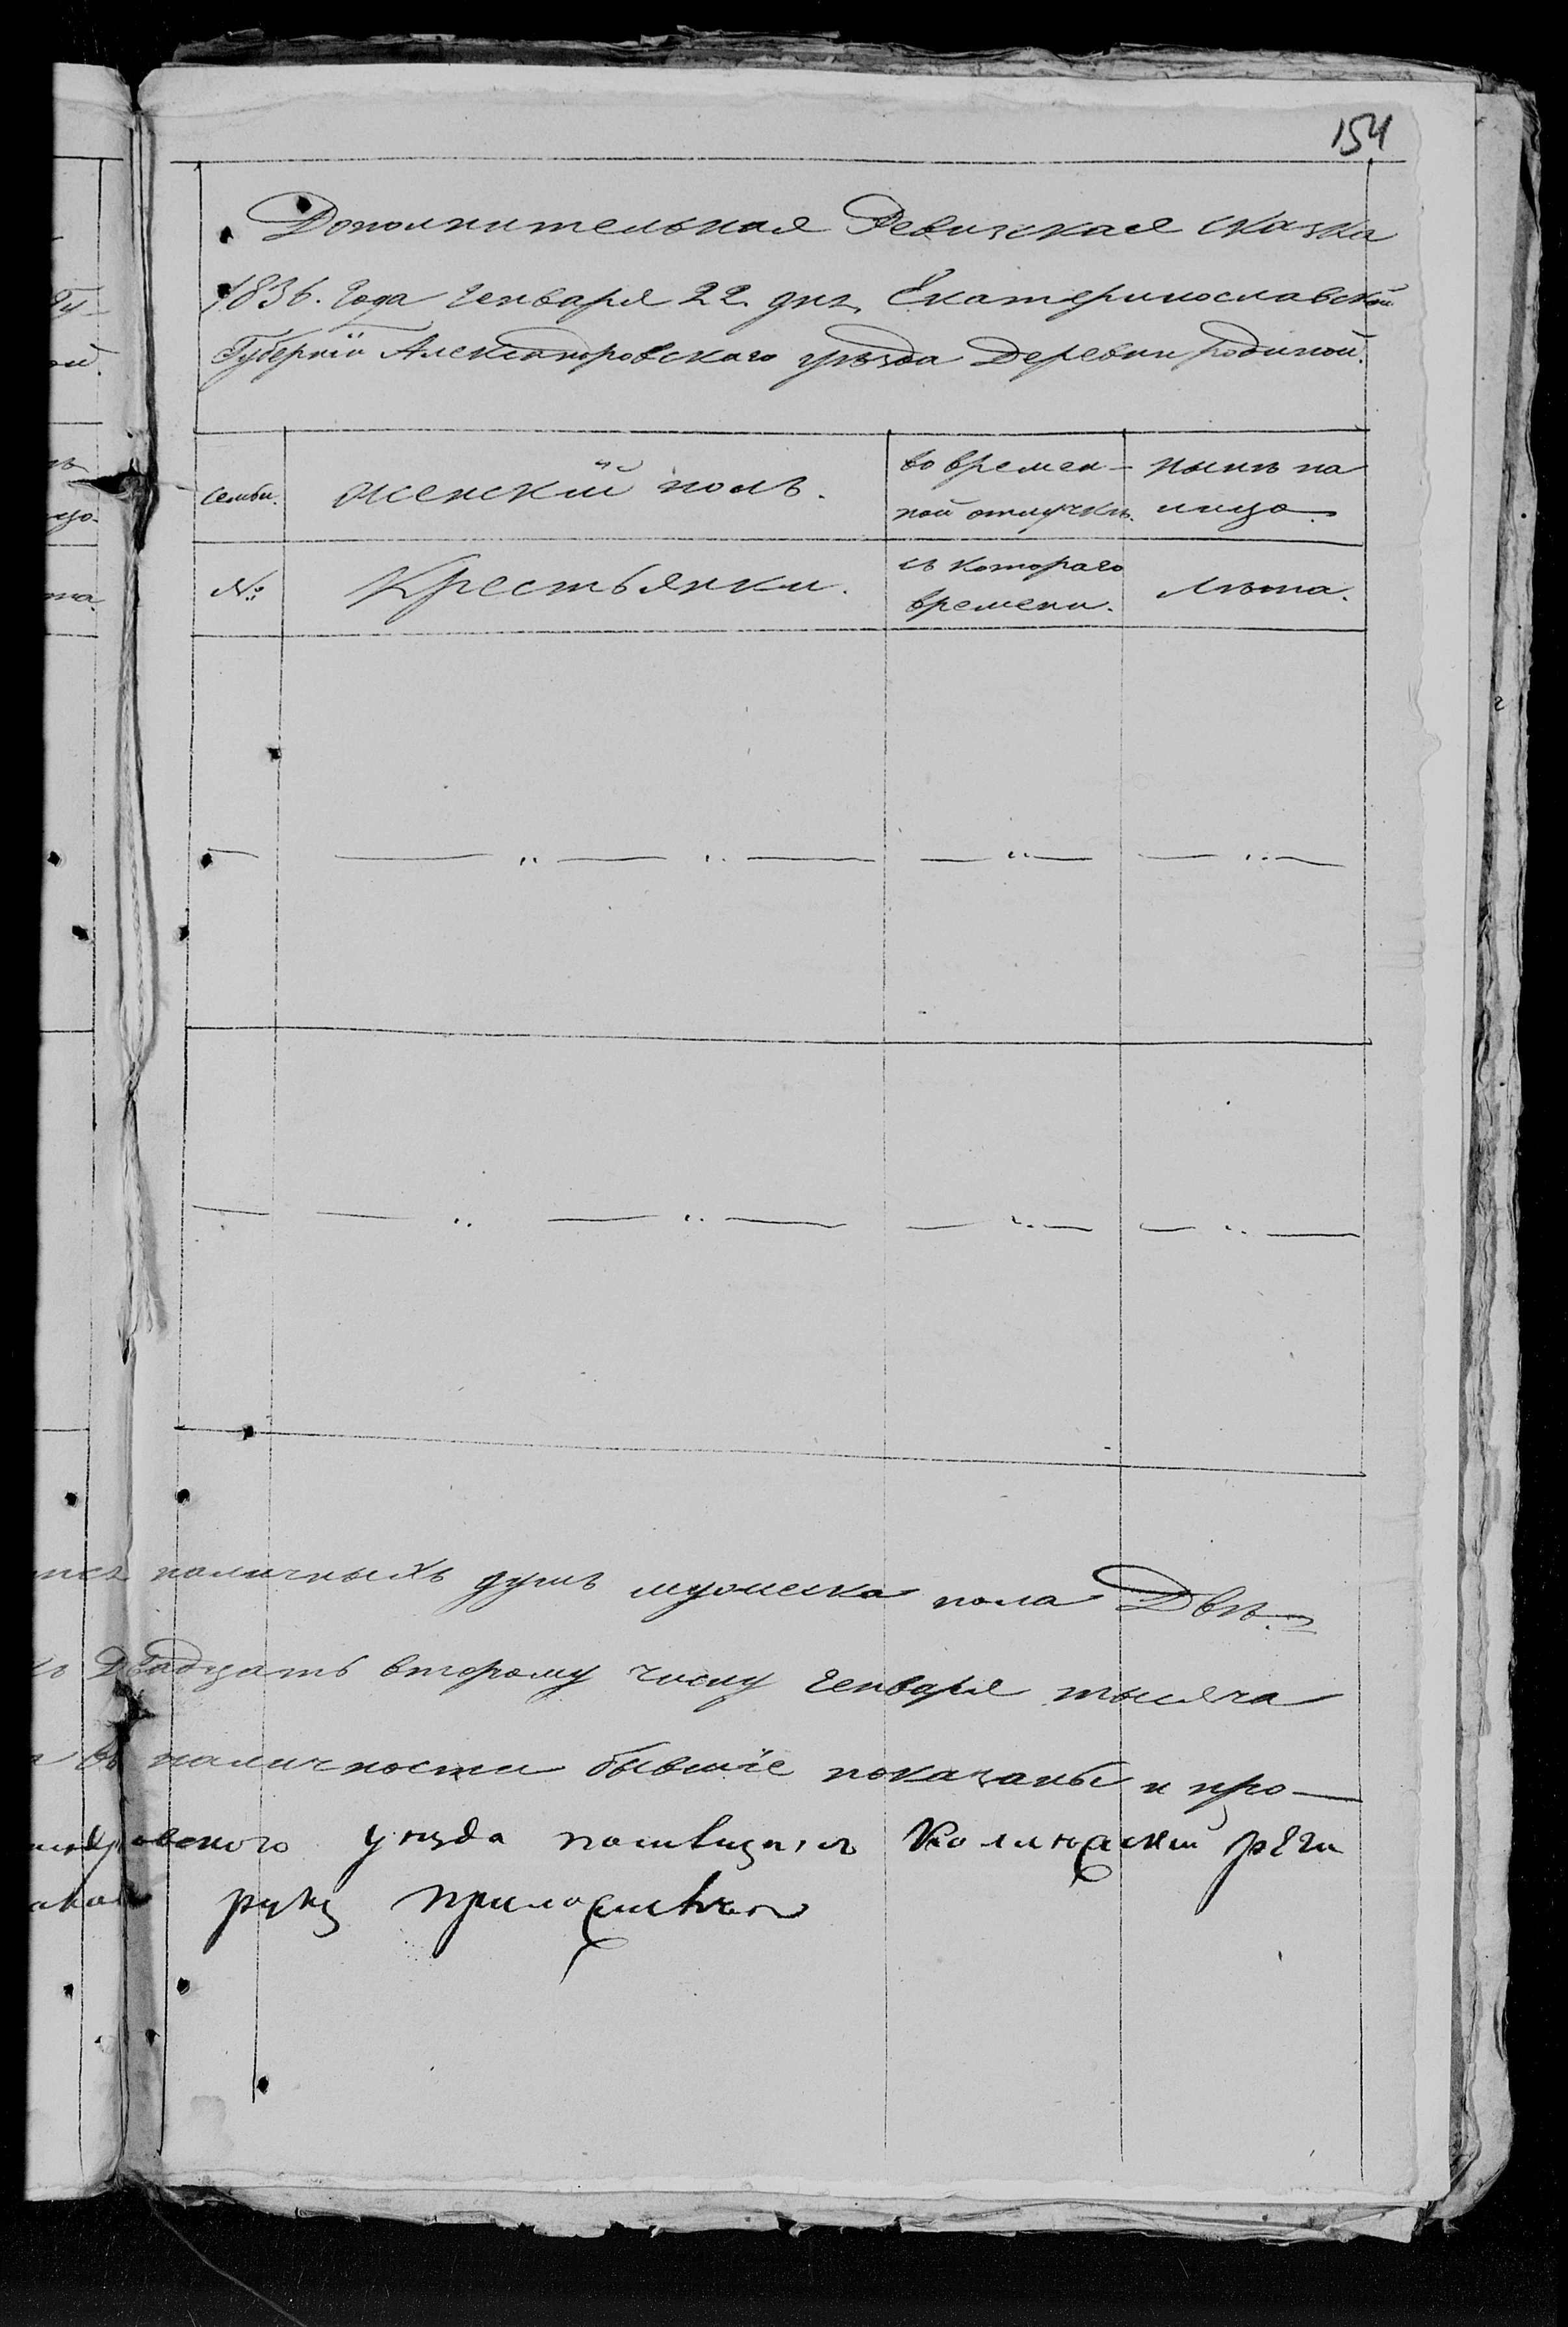 154
Дополнительная Ревизская сказка
1836. Года Генваря 22 дня, Екатеринославской
Губерніи Александровскаго уѣзда Деревни Родиной.
семьи. женскій полъ. во времен- нынѣ на
ной отлучкѣ. лицо.
№: Крестьянки. съ котораго лѣта.
времени.
наличныхъ душъ мужеска пола Двѣ.
Двадцать второму числу Генваря тысяча
въ наличности бывшіе показаны и про-
овского уезда помѣщикъ
руку приложилъ